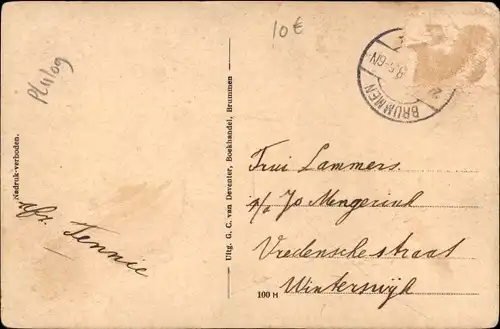 10€
Pl 11/09
Nadruk verboden.
Afz. Tennie
Uitg. G. C. van Deventer, Boekhandel, Brummen
BRUMMEN
Frui Lammers.
p/a Jo Mengerink
Vredenschestraat
Winterswijk
100 H